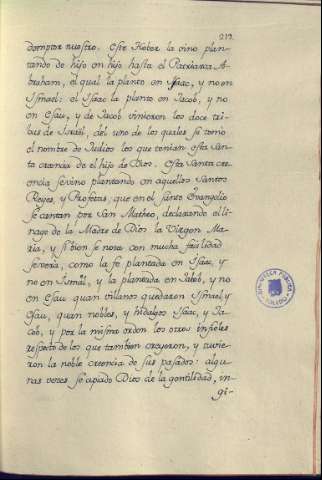 217.
domptor nuestro. Este Heber la vino plan-
tando de hijo en hijo hasta el Patriarca A-
braham, el qual la planto en Isaac, y no en
Ismael: el Isaac la planto en Jacob, y no
en Esau, y de Jacob vinieron los doce tri-
bus de Israèl, del uno de los quales se tomò
el nombre de Judios los que tenian esta San-
ta creencia de el hijo de Dios. Esta Santa cre-
encia se vino plantando en aquellos Santos
Reyes, y Profetas, que en el santo Evangelio
se cantan por San Matheo, declarando el li-
nage de la Madre de Dios la Virgen Ma-
ria, y si bien se nota con mucha facilidad
se veria, como la fe plantada en Isaac, y
no en Ismaèl, y la plantada en Jacob, y no
en Esau quan villanos quedaron Ismael y
Esau, quan nobles, y hidalgos Isaac, y Ja-
cob, y por la misma orden los otros infieles
respecto de los que tambien creyeron, y tuvie-
ron la noble creencia de sus pasados: algu-
nas veces se apiadò Dios de la gentilidad, in-
gi-
BIBLIOTECA PUBLICA
TOLEDO